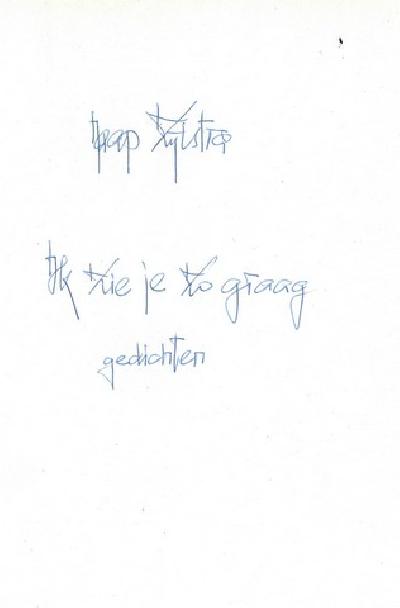 Jaap Zijlstra
Ik zie je zo graag
gedichten